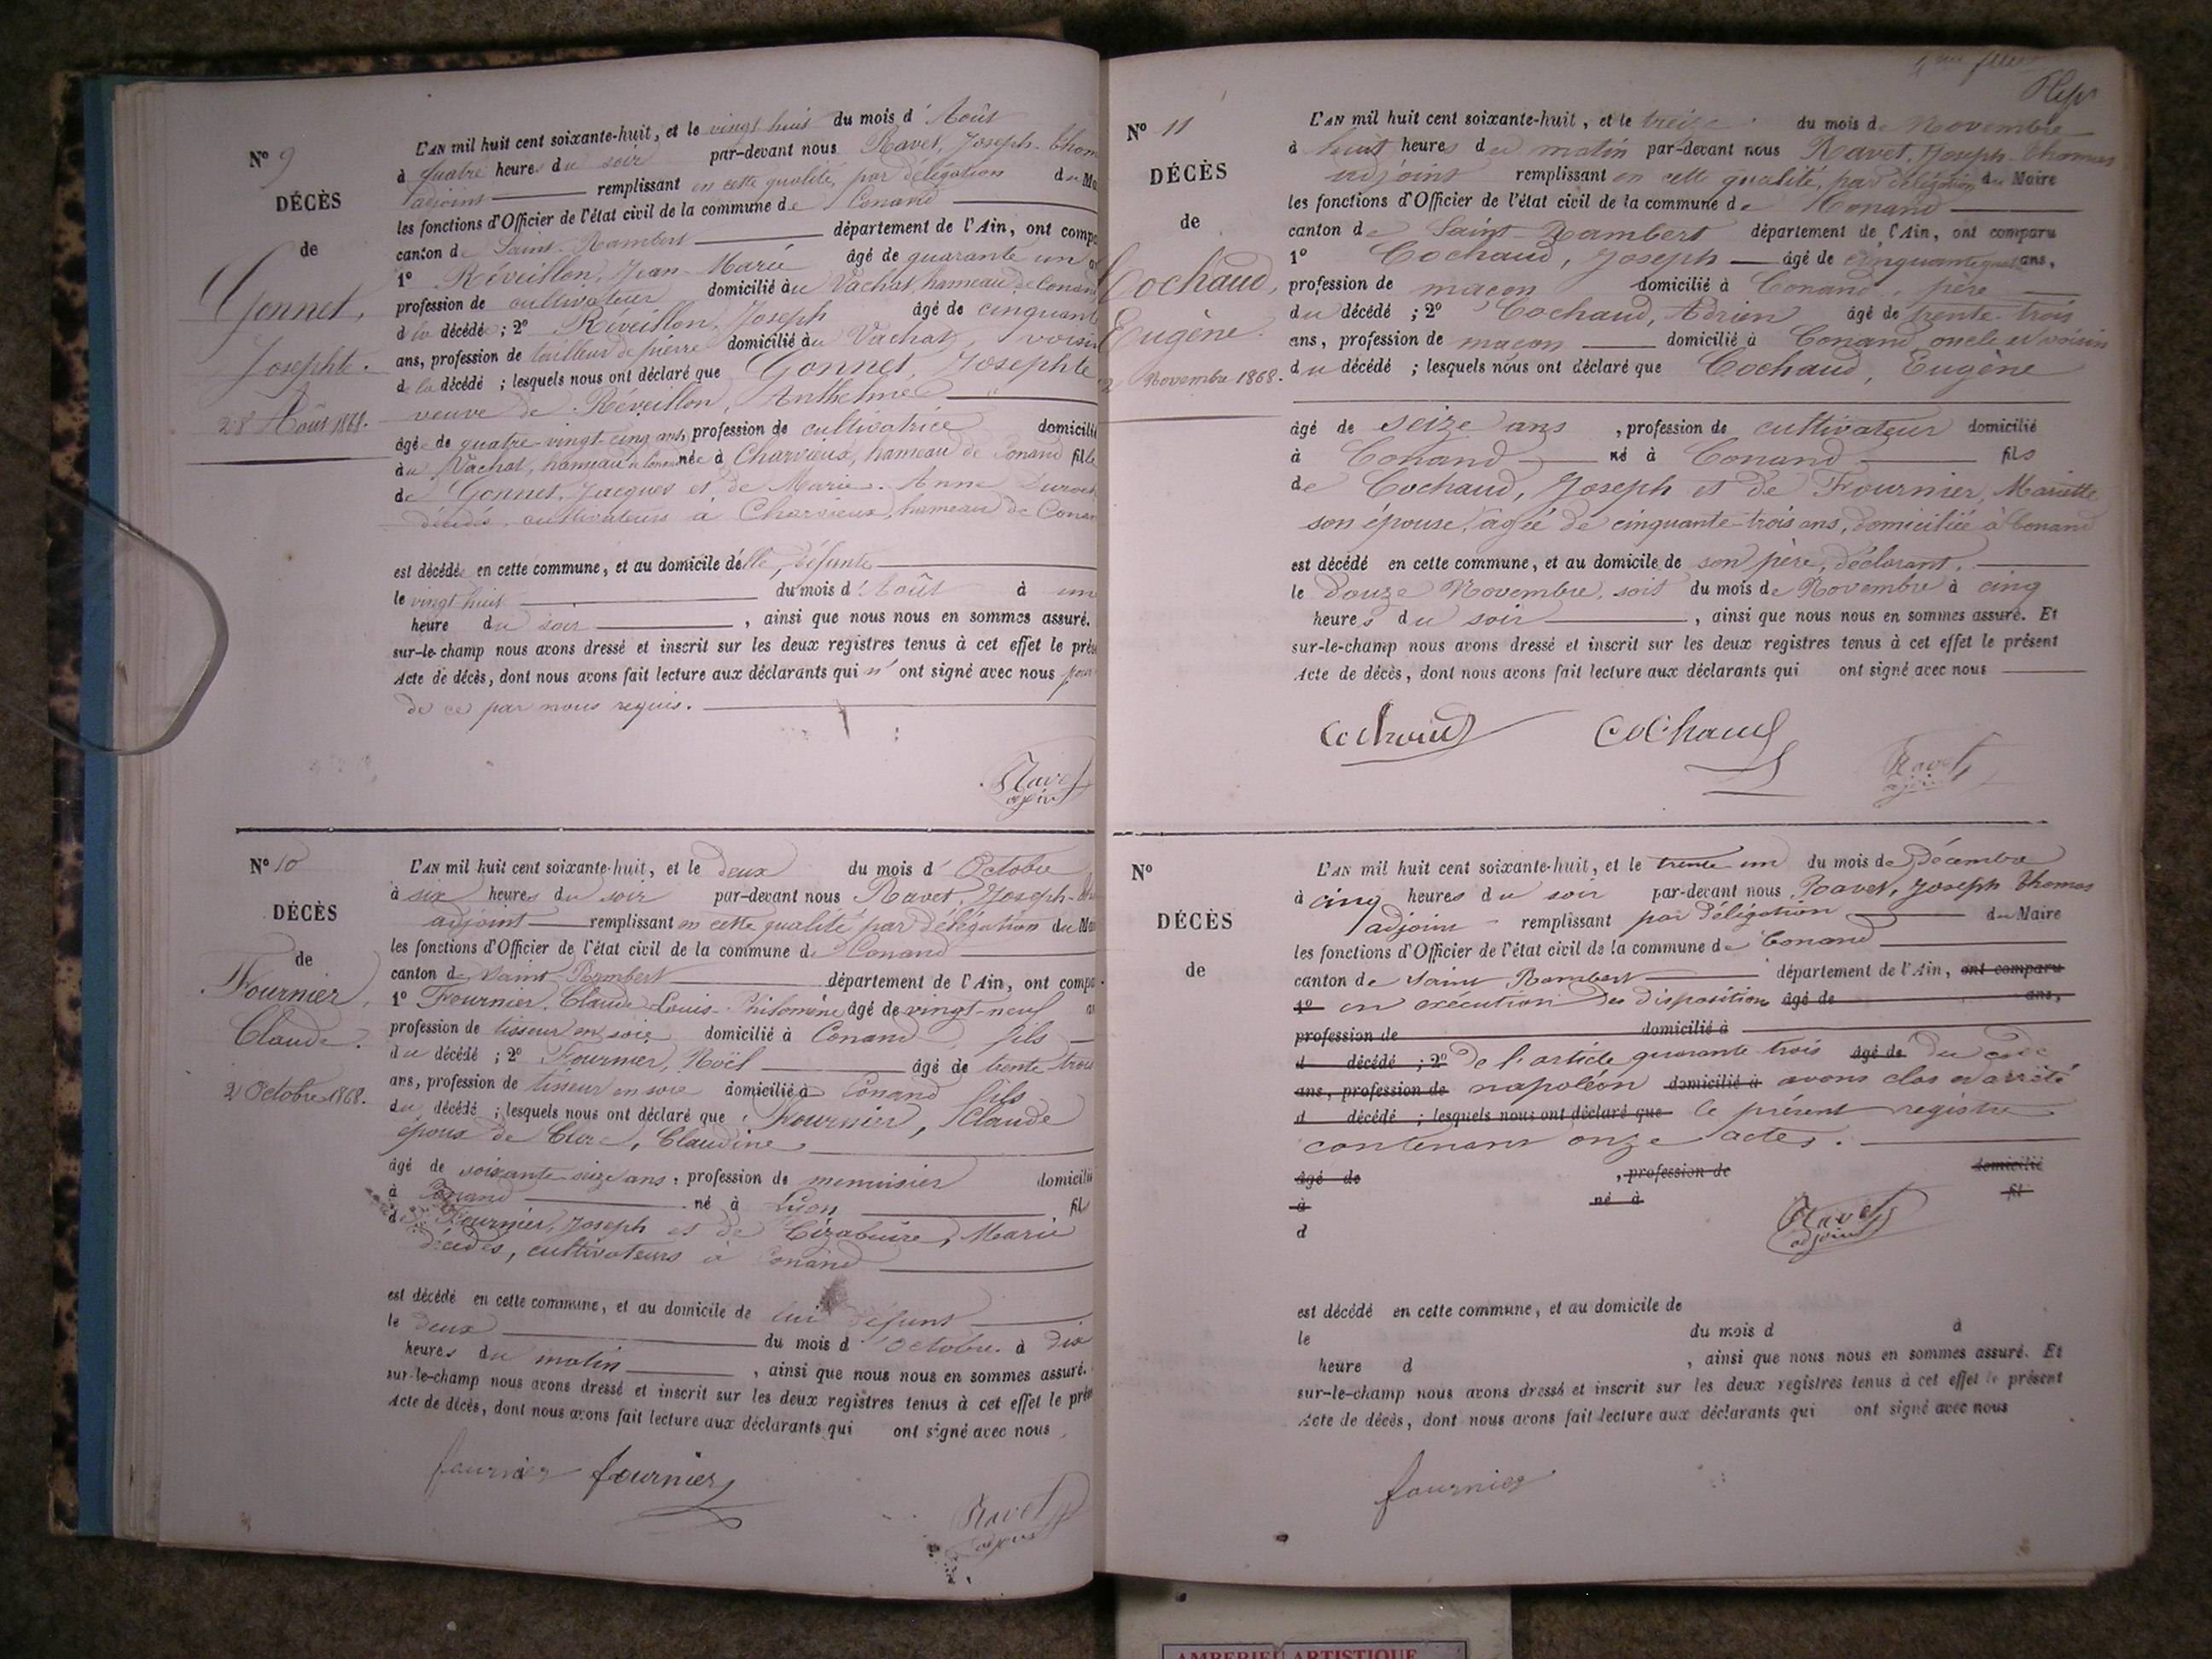 N° 9
DÉCÈS
de
Gonnet,
Josephte.
28 Août 1868.
L'AN mil huit cent soixante-huit, et le vingt huit du mois d'Août
à quatre heures du soir par-devant nous Ravet, Joseph-thom
adjoint remplissant en cette qualité, par délégation du Ma
les fonctions d'Officier de l'état civil de la commune de Conand
canton de Saint-Rambert département de l'Ain, ont compa
1° Réveillon, Jean-Marie âgé de quarante un a
profession de cultivateur domicilié au Vachat, hameau de Conand
d la décédé ; 2° Réveillon, Joseph âgé de cinquante
ans, profession de tailleur de pierre domicilié au Vachat, voisin
de la décédé ; lesquels nous ont déclaré que Gonnet, Josephte
veuve de Réveillon, Anthelme
âgée de quatre-vingt-cinq ans, profession de cultivatrice domicilié
au Vachat, hameau de Conand née à Charvieux, hameau de Conand fille
de Gonnet, Jacques et de Marie-Anne
décédés, cultivateurs à Charvieux, hameau de Conan
est décédée en cette commune, et au domicile d'elle, défunte
le vingt huit du mois d'Août à une
heure du soir , ainsi que nous nous en sommes assuré.
sur-le-champ nous avons dressé et inscrit sur les deux registres tenus à cet effet le prés
Acte de décès, dont nous avons fait lecture aux déclarants qui n'ont signé avec nous pour
de ce par nous requis.
Ravet
adjoint
N° 10
DÉCÈS
de
Fournier,
Claude.
2 Octobre 1868.
L'AN mil huit cent soixante-huit, et le deux du mois d'Octobre
à six heures du soir par-devant nous Ravet, Joseph-th
adjoint remplissant en cette qualité par délégation du Ma
les fonctions d'Officier de l'état civil de la commune de Conand
canton de Saint-Rambert département de l'Ain, ont compa
1° Fournier, Claude-Louis-Philomène âgé de vingt-neuf a
profession de tisseur en soie domicilié à Conand, fils
du décédé ; 2° Fournier, Noël âgé de trente trois
ans, profession de tisseur en soie domicilié à Conand fils
du décédé ; lesquels nous ont déclaré que Fournier, Claude
époux de Curc, Claudine
âgé de soixante-seize ans, profession de menuisier domicilié
à Conand né à Lyon fil
de Fournier, Joseph et de Marie
décédés, cultivateurs à Conand
est décédé en cette commune, et au domicile de lui défunt
le deux du mois d'Octobre à dix
heures du matin , ainsi que nous nous en sommes assuré.
sur-le-champ nous avons dressé et inscrit sur les deux registres tenus à cet effet le prés
Acte de décès, dont nous avons fait lecture aux déclarants qui ont signé avec nous.
fournier fournier
Ravet
adjoint
N° 11
DÉCÈS
de
Cochaud,
Eugène.
Novembre 1868.
L'AN mil huit cent soixante-huit, et le treize du mois de Novembre
à huit heures du matin par-devant nous Ravet, Joseph-thomas
adjoint remplissant en cette qualité, par délégation du Maire
les fonctions d'Officier de l'état civil de la commune de Conand
canton de Saint-Rambert département de l'Ain, ont comparu
1° Cochaud, Joseph âgé de cinquante quatre ans,
profession de maçon domicilié à Conand, père
du décédé ; 2° Cochaud, Adrien âgé de trente-trois
ans, profession de maçon domicilié à Conand, oncle et voisin
du décédé ; lesquels nous ont déclaré que Cochaud, Eugène
âgé de seize ans , profession de cultivateur domicilié
à Conand né à Conand fils
de Cochaud, Joseph et de Fournier, Mariette
son épouse, âgée de cinquante-trois ans, domiciliée à Conand
est décédé en cette commune, et au domicile de son père, déclarant.
le douze Novembre, soit du mois de Novembre à cinq
heures du soir , ainsi que nous nous en sommes assuré. Et
sur-le-champ nous avons dressé et inscrit sur les deux registres tenus à cet effet le présent
Acte de décès, dont nous avons fait lecture aux déclarants qui ont signé avec nous
Cochaud Cochaud Ravet
adjoint
N°
DÉCÈS
de
L'AN mil huit cent soixante-huit, et le trente un du mois de Décembre
à cinq heures du soir par-devant nous Ravet, Joseph thomas
adjoint remplissant par délégation du Maire
les fonctions d'Officier de l'état civil de la commune de Conand
canton de Saint Rambert département de l'Ain, ont comparu
1° en exécution des dispositions âgé de ans,
profession de domicilié à
d décédé ; 2° de l'article quarante trois âgé de du code
ans, profession de napoléon domicilié à avons clos et arrêté
d décédé ; lesquels nous ont déclaré que le présent registre
contenant onze actes.
âgé de , profession de domicilié
à né à fil
d
Ravet
adjoint
est décédé en cette commune, et au domicile de
le du mois d à
heure d , ainsi que nous nous en sommes assuré. Et
sur-le-champ nous avons dressé et inscrit sur les deux registres tenus à cet effet le présent
Acte de décès, dont nous avons fait lecture aux déclarants qui ont signé avec nous
fournier
AMBERIEU ARTISTIQUE